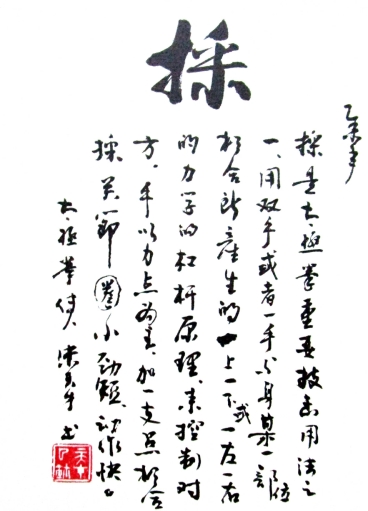 採
乙未年
採是太極拳重要技击用法之
一、用双手或者一手与身某一部位
相合所產生的一上一下或一左一右
的力学的杠杆原理、来控制对
方。手以力点為主、加一支点相合
採关節圈小劲短、动作快。
太極拳传人 书